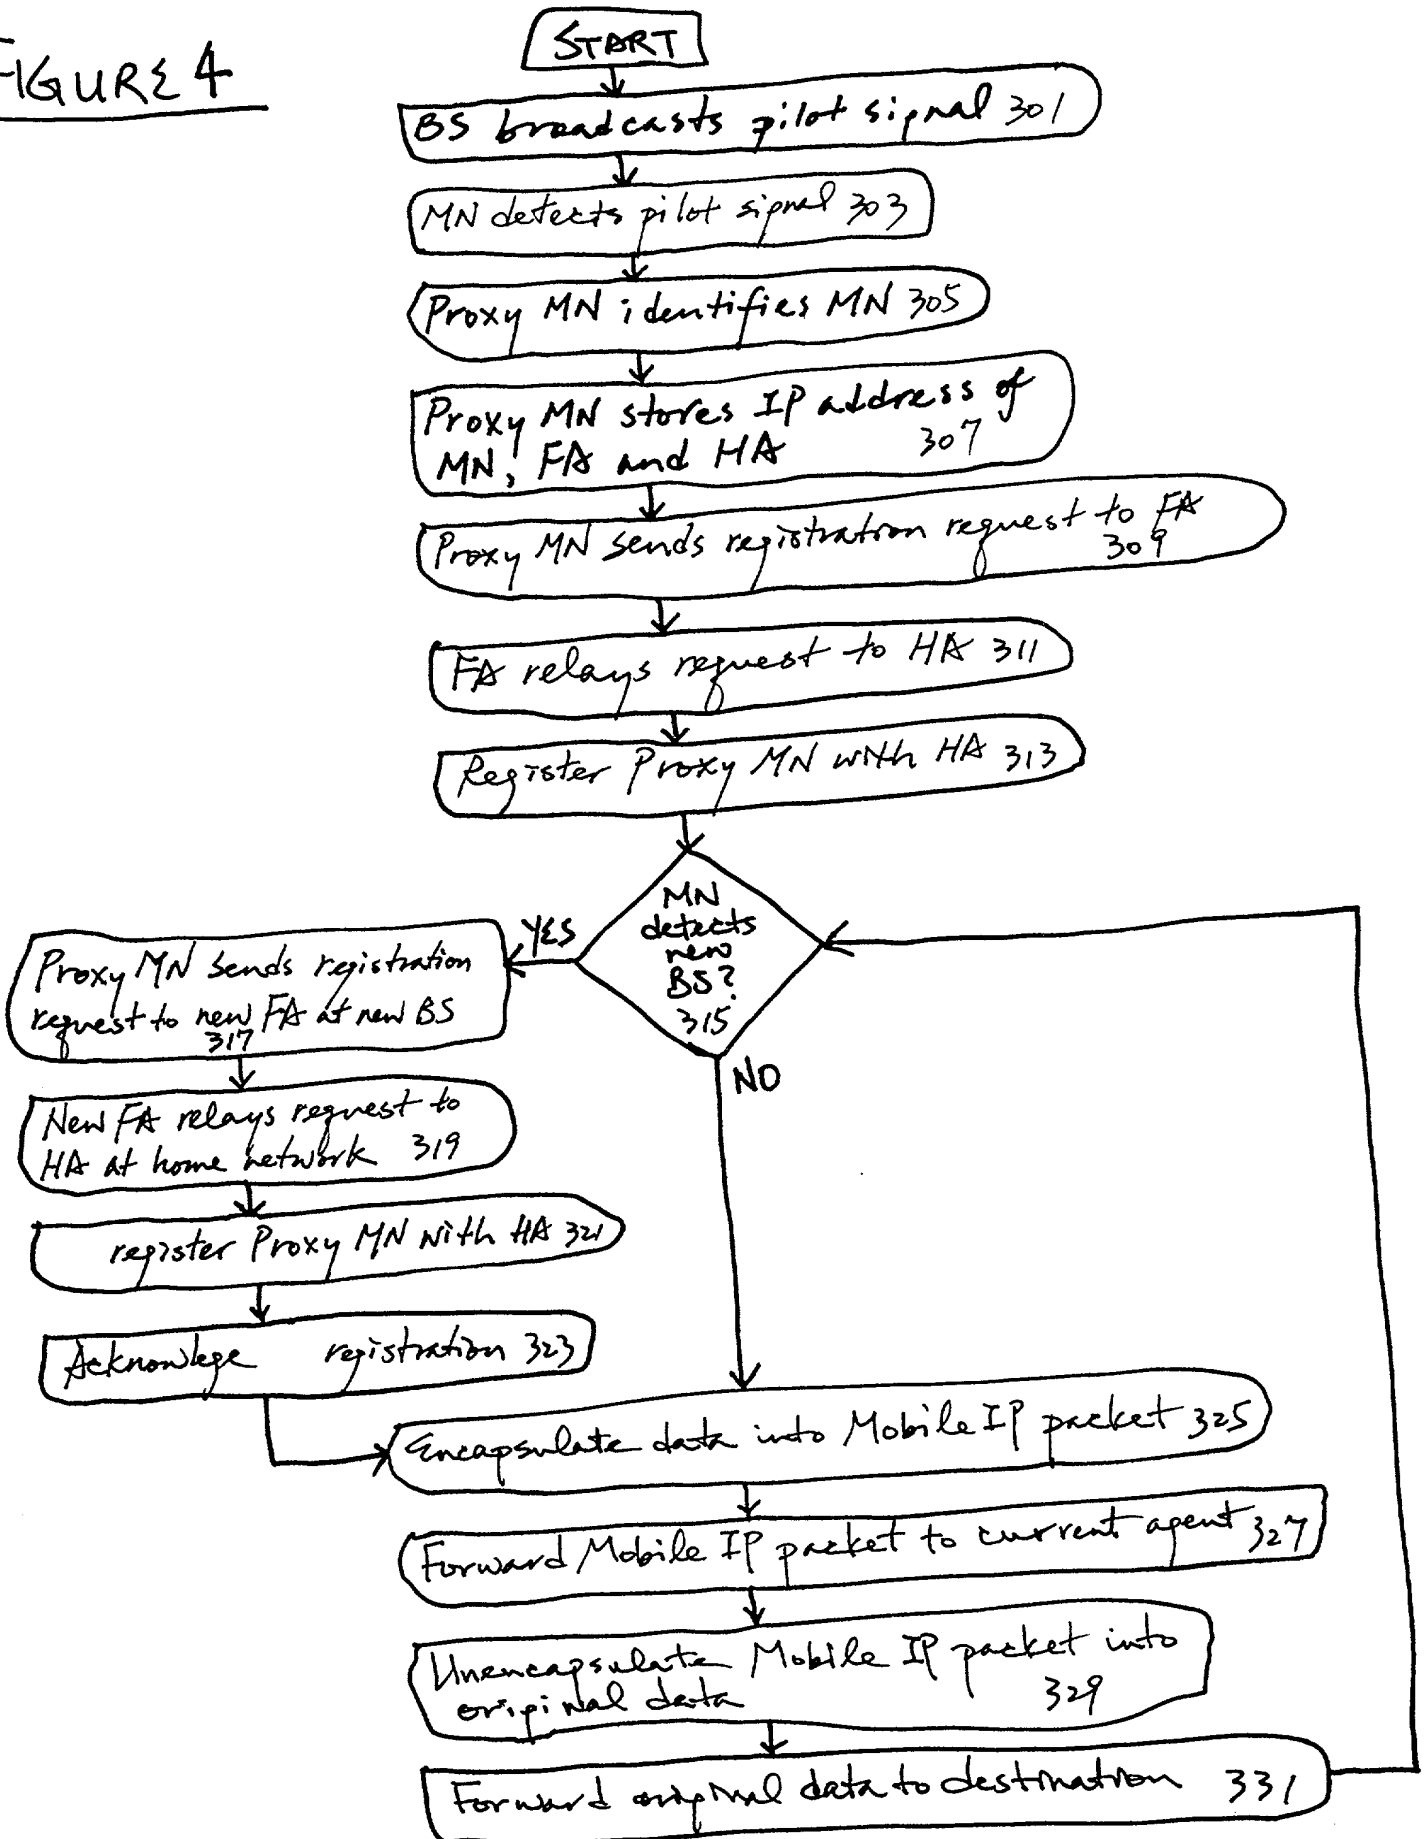 FIGURE 4
START
BS broadcasts pilot signal 301
MN detects pilot signal 303
Proxy MN identifies MN 305
Proxy MN stores IP address of
MN, FA and HA 307
Proxy MN sends registration request to FA
309
FA relays request to HA 311
Register Proxy MN with HA 313
MN
detects
new
BS?
315
YES
NO
Proxy MN sends registration
request to new FA at new BS
317
New FA relays request to
HA at home network 319
register Proxy MN with HA 321
Acknowlege registration 323
Encapsulate data into Mobile IP packet 325
Forward Mobile IP packet to current agent 327
Unencapsulate Mobile IP packet into
original data 329
Forward original data to destination 331